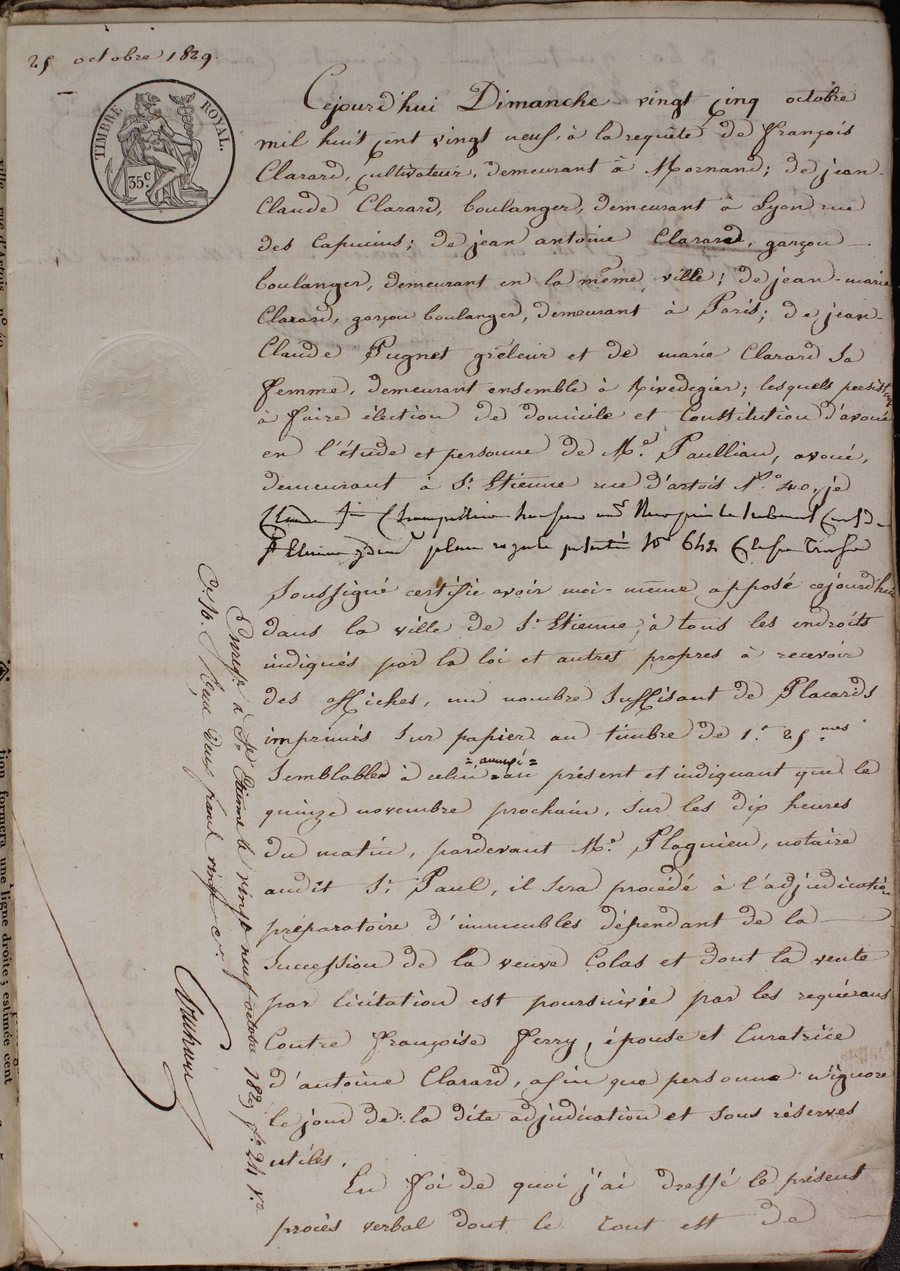 25 octobre 1829
TIMBRE ROYAL.
35 c.
Cejourd'hui Dimanche vingt cinq octobre
mil huit cent vingt neuf, à la requête de françois
Clarard, Cultivateur, demeurant à Mornand; de jean-
Claude Clarard, boulanger, demeurant à Lyon rue
des Capucins; de jean antoine Clarard, garçon
boulanger, demeurant en la même ville; de jean-marie
Clarard, garçon boulanger, demeurant à Paris; de jean-
Claude Pugnet grêleur et de marie Clarard sa
femme, demeurant ensemble à Rivedegier; lesquels persistent
à faire élection de domicile et Constitution d'avoué
en l'étude et personne de Me. Paullian, avoué,
demeurant à St. Etienne rue d'artois No. 40, je
soussigné certifie avoir moi-même apposé cejourd'hui
dans la ville de St. Etienne, à tous les endroits
indiqués par la loi et autres propres à recevoir
des affiches, un nombre suffisant de Placards
imprimés sur papier au timbre de 1f. 25 mes
semblables à celui = annexé = au présent et indiquant que le
quinze novembre prochain, sur les dix heures
du matin, pardevant Me. Plagnieu, notaire
audit St. Paul, il sera procédé à l'adjudication
préparatoire d'immeubles dépendant de la
succession de la veuve Colas et dont la vente
par licitation est poursuivie par les requérans
Contre françoise ferry, épouse et Curatrice
d'antoine Clarard, afin que personne n'ignore
le jour de la dite adjudication et sous réserves
utiles.
En foi de quoi j'ai dressé le présent
procès verbal dont le Cout est de
Enregr. à St. Etienne le vingt neuf octobre 1829 fo. 24 Vo.
Reçu deux francs vingt c.
ville, rue d'Artois, no 40
tion formera une ligne droite; estimée cent